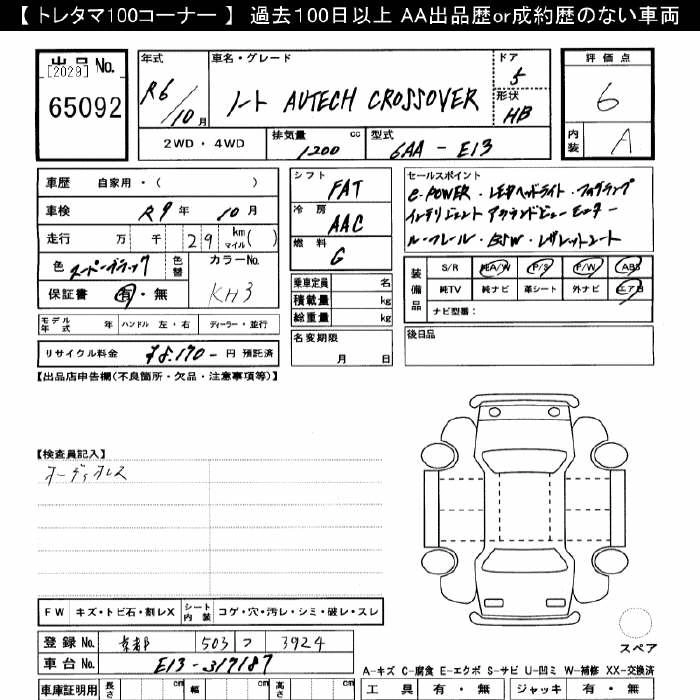 【 トレタマ100コーナー 】 過去100日以上 AA出品歴or成約歴のない車両
出品 No. [2029]
65092
年式 R6/10月
車名・グレード ノート AUTECH CROSSOVER
ドア 5
形状 HB
評価点 6
内装 A
2WD・4WD
排気量 1200 cc
型式 6AA-E13
車歴 自家用・( )
車検 R9年 10月
走行 万 千 29 km マイル( )
色 スーパーブラック 色替
カラーNo. KH3
保証書 有・無
モデル年式 年 ハンドル 左・右 ディーラー・並行
リサイクル料金 ¥8,170- 円 預託済
シフト FAT
冷房 AAC
燃料 G
乗車定員 名
積載量 kg
総重量 kg
名変期限 月 日
セールスポイント
e-POWER・LEDヘッドライト・フォグランプ
インテリジェント アラウンドビューモニター
ルーフレール・BSW・レザレットシート
装備品 S/R 純A/W P/S P/W ABS
純TV 純ナビ 革シート 外ナビ エアB
ナビ型番:
後日品
【出品店申告欄(不良箇所・欠品・注意事項等)】
【検査員記入】
オーディオレス
FW キズ・トビ石・割レX シート内装 コゲ・穴・汚レ・シミ・破レ・スレ
登録 No. 京都 503 つ 3924
車台 No. E13-317187
スペア
A-キズ C-腐食 E-エクボ S-サビ U-凹ミ W-補修 XX-交換済
車庫証明用 長さ cm 幅 cm 高さ cm
工具 有・無 ジャッキ 有・無